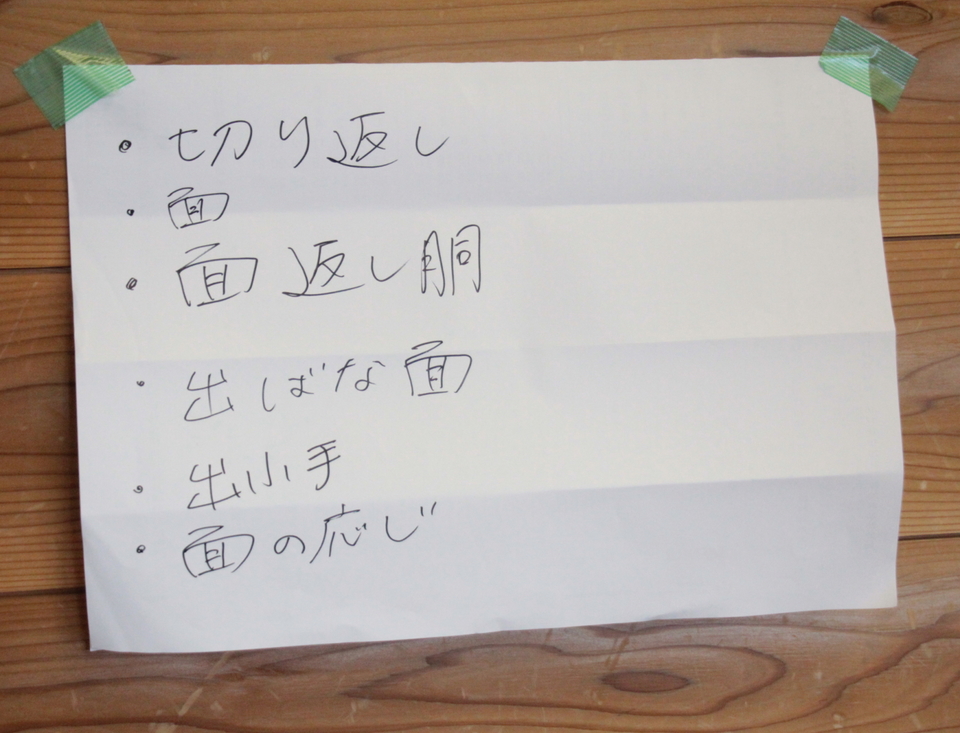 ・切り返し
・面
・面返し胴
・出ばな面
・出小手
・面の応じ